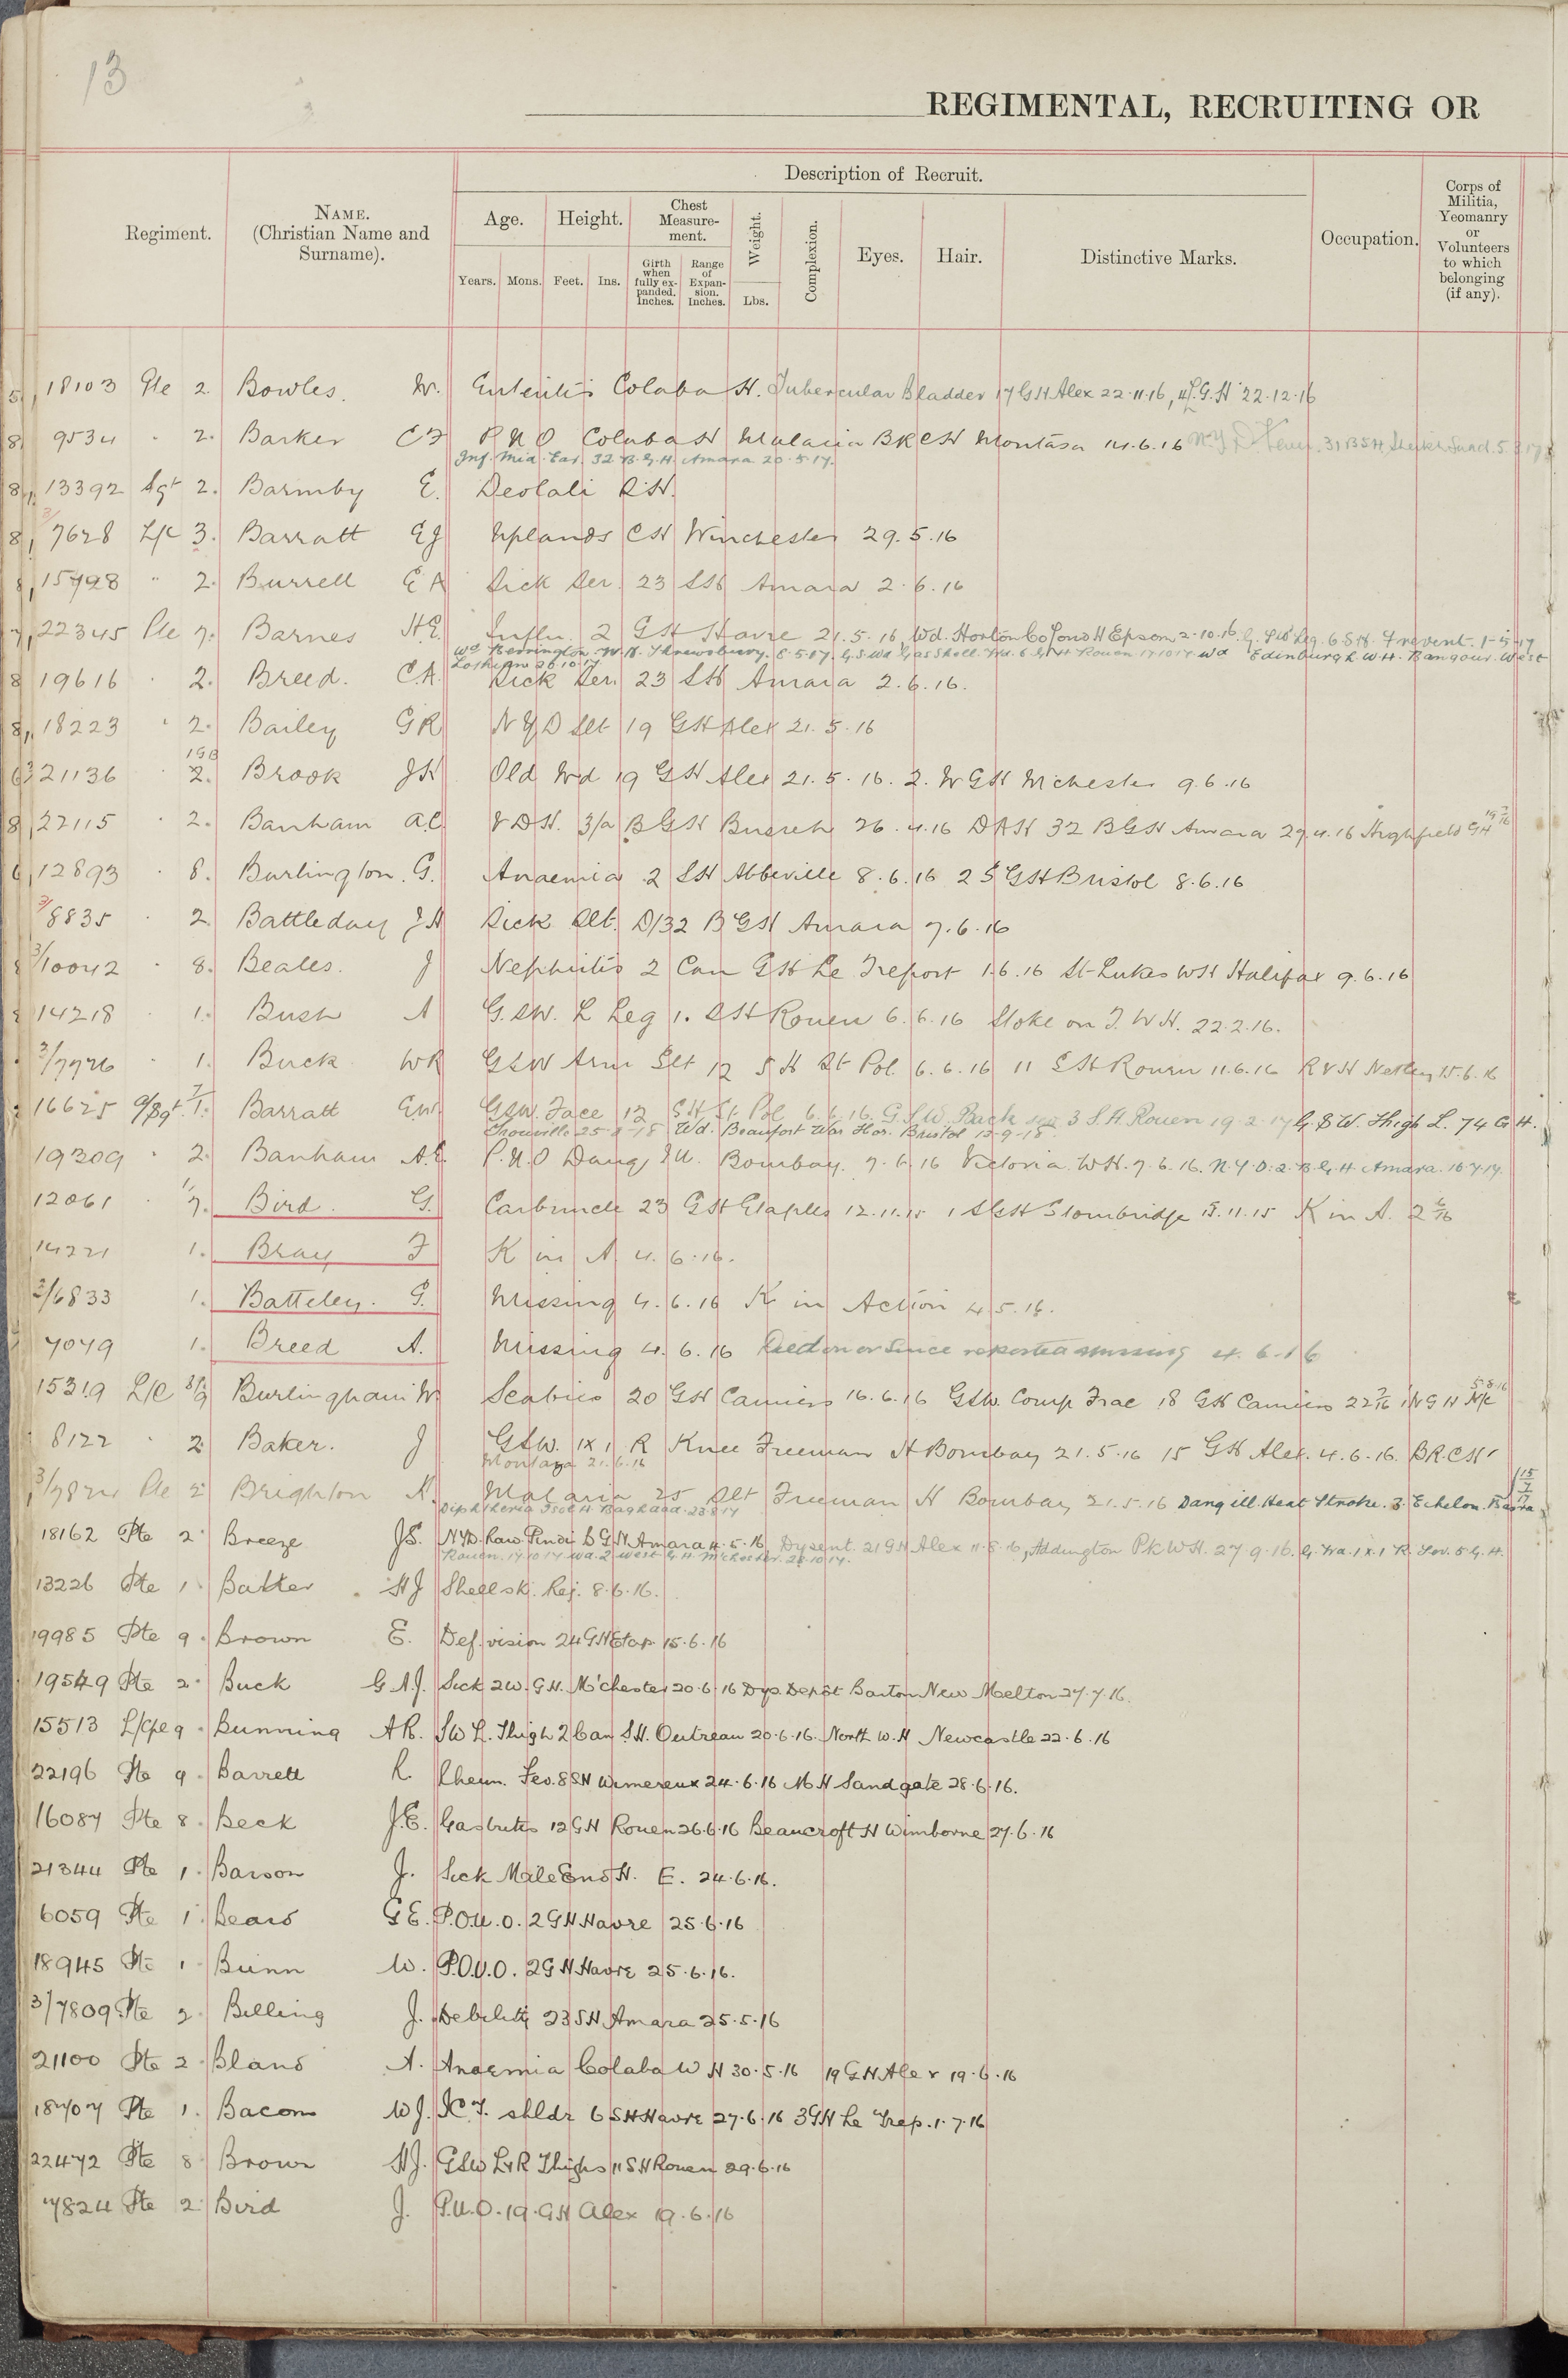 13
REGIMENTAL, RECRUITING OR
Regiment.
NAME.
(Christian Name and
Surname).
Description of Recruit.
Age.
Height.
Chest
Measure-
ment.
Weight.
Complexion.
Eyes.
Hair.
Distinctive Marks.
Occupation.
Corps of
Militia,
Yeomanry
or
Volunteers
to which
belonging
(if any).
Years.
Mons.
Feet.
Ins.
Girth
when
fully ex-
panded.
Inches.
Range
of
Expan-
sion.
Inches.
Lbs.
18103 Pte 2 Bowles. W. Enteritis Colaba H. Tubercular Bladder 17 GH Alex 22.11.16, 22.12.16
9534 " 2. Barker C F P U O Colaba H Malaria BRCH Montasa 14.6.16 N.Y.D. Fever. 31 BSH,
Inf. Mid. Ear. 32 B.G.H. Amara 20.5.17.
13392 Sgt 2. Barmby E. Deolali R.H.
7628 L/c 3. Barratt EJ Uplands CH Winchester 29.5.16
15798 " 2. Burrell E A Sick Ser. 23 SSH Amara 2.6.16
22345 Pte 7. Barnes H.E. Influ. 2 GH Havre 21.5.16 Wd. Horton Co Lond H Epsom 2.10.16. G. SW Leg. 6 S.H. Frevent. 1-5-17
Wd Berrington W.H. Shrewsbury. 8.5.17. G.S.Wd Gas Shell. 6 G.H Rouen. 17.10.17. Wd Edinburgh W.H. Bangour. West
Lothian 26.10.17
19616 " 2. Breed. C.A. Sick Ser. 23 SH Amara 2.6.16.
18223 " 2. Bailey GR N Y D Slt 19 GH Alex 21.5.16
21136 " 2. Brook JH Old Wd 19 GH Alex 21.5.16. 2. W GH Mchester 9.6.16
22115 " 2. Banham A.C. V D H. 3/a BGH Busreh 26.4.16 DAH 32 BGH Amara 29.4.16 Highfield GH
12893 " 8. Burlington. G. Anaemia 2 SH Abbeville 8.6.16 2 S GH Bristol 8.6.16
3/8835 " 2 Battleday JH Sick Slt. D/32 B GH Amara 7.6.16
3/10042 " 8. Beales. J Nephritis 2 Can GH Le Treport 1.6.16 St Lukes WH Halifax 9.6.16
14218 " 1. Bush A G.S.W. L Leg 1. SH Rouen 6.6.16 Stoke on T. W.H. 22.2.16.
3/7776 " 1. Buck WR GSW Arm Slt 12 S H St Pol. 6.6.16 11 SH Rouen 11.6.16 R V H Netley 15.6.16
16625 a/Sgt. 1. Barratt G.W. GSW. Face 12 SH St. Pol 6.6.16. G.S.W. Back 3 S.H. Rouen 19.2.17 G.S.W. Thigh L. 74 G.H.
Trouville 25-8-18 Wd. Beaufort War Hos. Bristol 13-9-18.
19309 " 2. Banham A.E. P.U.O Dang Ill. Bombay. 7.6.16 Victoria W.H. 7.6.16. N.Y.D. 2. B.G.H. Amara. 10.7.17.
12061 " 7. Bird. G. Carbuncle 23 GH Etaples 12.11.15 1 SGH Stourbridge 15.11.15 K in A. 2 6/16
14221 1. Bray F K in A. 4.6.16.
3/6833 1. Batteley. G. Missing 4.6.16 K in Action 4.5.16.
7079 1. Breed A. Missing 4.6.16 Died on or since reported missing 4.6.16
15319 L/C 9 Burlingham W. Scabies 20 GH Camiers 16.6.16 GSW. Comp Frac 18 GH Camiers 22 7/16
8122 " 2 Baker. J GSW. 1 X 1 R Knee Freeman H Bombay 21.5.16 15 GH Alex. 4.6.16. B.R.C.H
Montaza 21.6.16
Pte 2 Brighton A. Malaria 25 Slt Freeman H Bombay 21.5.16 Dang ill. Heat Stroke. 3. Echelon. Basra.
Diphtheria Isol H Baghdad. 23.8.17
18162 Pte 2 Breeze JS. NYD. Raw. Pindi B G H Amara 4.5.16 Dysent. 21 GH Alex 11.8.16, Addington Pk WH. 27.9.16. G. Wd. 1 x 1 R. 5 G.H.
Rouen. 17.10.17 Wd. 2 West G.H. McHester. 28.10.17.
13226 Pte 1 Batter HJ Shell sk. Rej. 8.6.16.
19985 Pte 9. Brown E. Def. vision 24 GH Etap. 15.6.16
19549 Pte 2. Buck G A.J. Sick 2 W. G.H. M'chester 20.6.16 Dys. Depôt Barton New Melton 27.7.16.
15513 L/Cpl 9. Bunning AR. SW L. Thigh 2 Can S.H. Outreau 20.6.16. North W.H Newcastle 22.6.16
22196 Pte 9. Barrett R. Rheum. Fev. 8 SH Wimereux 24.6.16 M H Sandgate 28.6.16.
16087 Pte 8. Beck J.E. Gastritis 12 GH Rouen 26.6.16 Beaucroft H Wimborne 27.6.16
21344 Pte 1. Barson J. Sick Mile End H. E. 24.6.16.
6059 Pte 1. Beard G E. P.O.U.O. 2 GH Havre 25.6.16
18945 Pte 1. Bunn W. P.O.U.O. 2 G H Havre 25.6.16.
3/7809 Pte 2 Billing J. Debility 23 SH Amara 25.5.16
21100 Pte 2. Bland A. Anaemia Colaba W H 30.5.16 19 GH Alex 19.6.16
18707 Pte 1. Bacon WJ. I.C.T. shldr 6 SH Havre 27.6.16 3 GH Le Trep. 1.7.16
22472 Pte 8 Brown HJ. GSW L & R Thighs 11 SH Rouen 29.6.16
7824 Pte 2. Bird J. P.U.O. 19. GH Alex 19.6.16